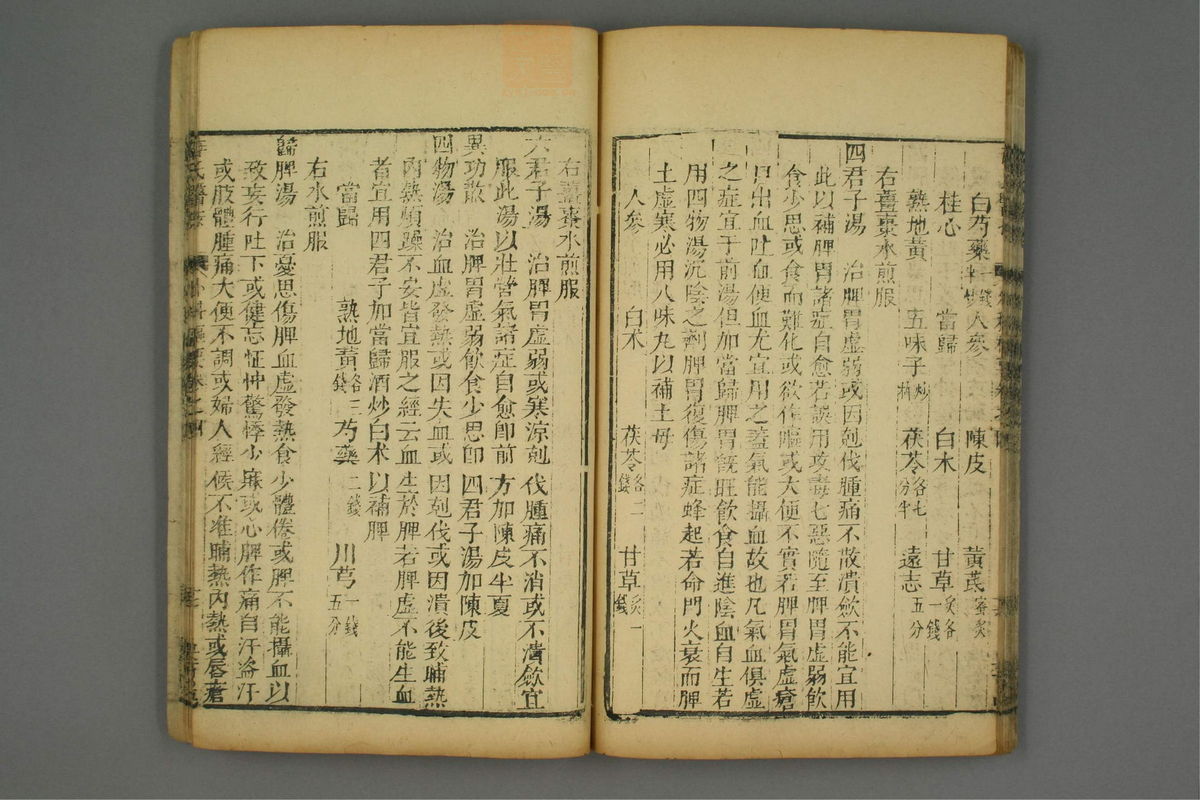 白芍藥 一錢 人參 陳皮 黃芪 蜜炙
桂心 當歸 白朮 甘草 炙各一錢
熟地黃 五味子 炒 茯苓 各七分半 遠志 五分
右薑棗水煎服
四君子湯 治脾胃虛弱或因剋伐腫痛不散潰斂不能宜用
此以補脾胃諸症自愈若誤用攻毒七惡隨至脾胃虛弱飲
食少思或食而難化或欲作嘔或大便不實若脾胃氣虛瘡
口出血吐血便血尤宜用之蓋氣能攝血故也凡氣血俱虛
之症宜于前湯但加當歸脾胃旣旺飲食自進陰血自生若
用四物湯沉陰之劑脾胃復傷諸症蜂起若命門火衰而脾
土虛寒必用八味丸以補土母
人參 白朮 茯苓 各二錢 甘草 炙一錢
右薑棗水煎服
六君子湯 治脾胃虛弱或寒涼剋伐腫痛不消或不潰斂宜
服此湯以壯營氣諸症自愈卽前方加陳皮半夏
異功散 治脾胃虛飲食少思卽四君子湯加陳皮
四物湯 治血虛發熱或因失血或因剋伐或因潰後致晡熱
內熱煩躁不安皆宜服之經云血生於脾若脾虛不能生血
者宜用四君子加當歸酒炒白朮以補脾
當歸 熟地黃 各三錢 芍藥 二錢 川芎 一錢五分
右水煎服
歸脾湯 治憂思傷脾血虛發熱食少體倦或脾不能攝血以
致妄行吐下或健忘怔忡驚悸少寐或心脾作痛自汗盜汗
或肢體腫痛大便不調或婦人經候不准晡熱內熱或唇瘡